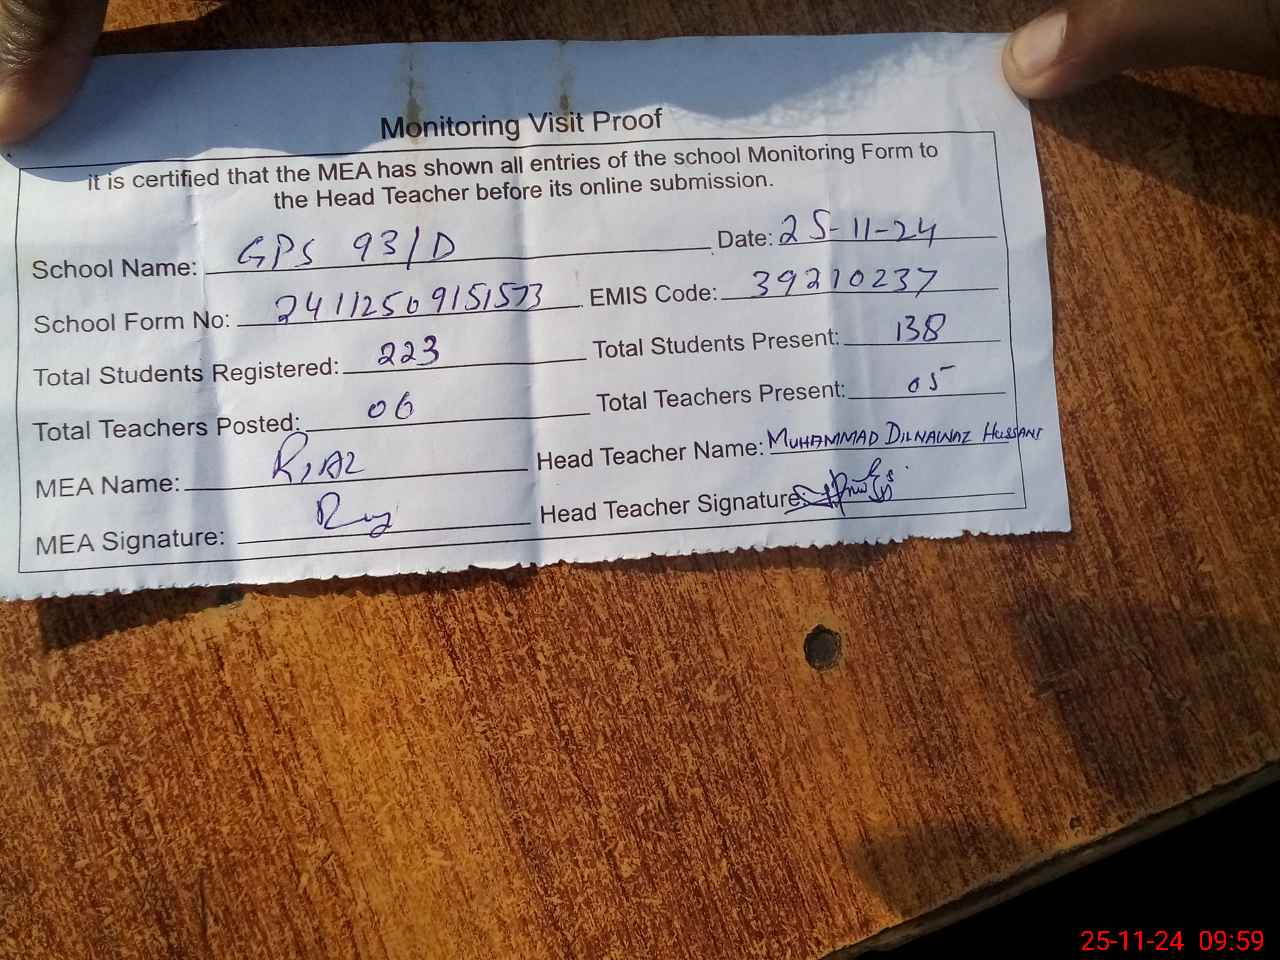 Monitoring Visit Proof
it is certified that the MEA has shown all entries of the school Monitoring Form to
the Head Teacher before its online submission.
School Name: GPS 93/D Date: 25-11-24
School Form No: 24112509151573 EMIS Code: 39210237
Total Students Registered: 223 Total Students Present: 138
Total Teachers Posted: 06 Total Teachers Present: 05
MEA Name: RIAZ Head Teacher Name: MUHAMMAD DILNAWAZ HUSSANI
MEA Signature: Head Teacher Signature:
25-11-24 09:59